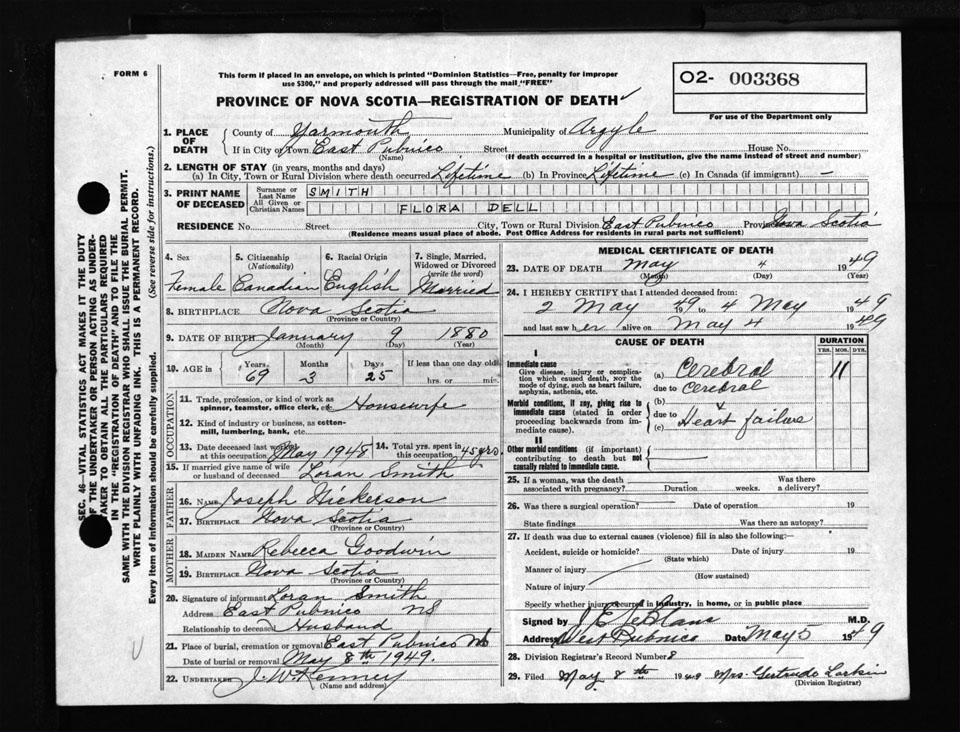 FORM 6
This form if placed in an envelope, on which is printed "Dominion Statistics—Free, penalty for improper
use $300," and properly addressed will pass through the mail "FREE"
O2- 003368
For use of the Department only
PROVINCE OF NOVA SCOTIA—REGISTRATION OF DEATH
1. PLACE OF DEATH
County of Yarmouth Municipality of Argyle
If in City or Town East Pubnico Street House No.
(Name) (If death occurred in a hospital or institution, give the name instead of street and number)
2. LENGTH OF STAY (in years, months and days)
(a) In City, Town or Rural Division where death occurred Lifetime (b) In Province Lifetime (c) In Canada (if immigrant) —
3. PRINT NAME OF DECEASED
Surname or Last Name SMITH
All Given or Christian Names FLORA DELL
RESIDENCE No. Street City, Town or Rural Division East Pubnico Province Nova Scotia
(Residence means usual place of abode. Post Office Address for residents in rural parts not sufficient)
4. Sex
Female
5. Citizenship
(Nationality)
Canadian
6. Racial Origin
English
7. Single, Married,
Widowed or Divorced
(write the word)
Married
8. BIRTHPLACE Nova Scotia
(Province or Country)
9. DATE OF BIRTH January 9 1880
(Month) (Day) (Year)
10. AGE in
Years Months Days If less than one day old
69 3 25 hrs. or min.
OCCUPATION
11. Trade, profession, or kind of work as
spinner, teamster, office clerk, etc. Housewife
12. Kind of industry or business, as cotton-
mill, lumbering, bank, etc.
13. Date deceased last worked
at this occupation May 1948
14. Total yrs. spent in
this occupation 45 yrs.
15. If married give name of wife
or husband of deceased Loran Smith
FATHER
16. NAME Joseph Nickerson
17. BIRTHPLACE Nova Scotia
(Province or Country)
MOTHER
18. MAIDEN NAME Rebecca Goodwin
19. BIRTHPLACE Nova Scotia
(Province or Country)
20. Signature of informant Loran Smith
Address East Pubnico NS
Relationship to deceased Husband
21. Place of burial, cremation or removal East Pubnico NS
Date of burial or removal May 8th 1949.
22. UNDERTAKER J. W. Kenney
(Name and address)
MEDICAL CERTIFICATE OF DEATH
23. DATE OF DEATH May 4 1949
(Month) (Day) (Year)
24. I HEREBY CERTIFY that I attended deceased from:
2 May 1949 to 4 May 1949
and last saw her alive on May 4 1949
CAUSE OF DEATH
DURATION
YRS. MOS. DYS.
I
Immediate cause
Give disease, injury or complica-
tion which caused death, NOT the
mode of dying, such as heart failure,
asphyxia, asthenia, etc.
(a) Cerebral
due to Cerebral
11
Morbid conditions, if any, giving rise to
immediate cause (stated in order
proceeding backwards from im-
mediate cause).
(b) +
due to
(c) Heart failure
II
Other morbid conditions (if important)
contributing to death but not
causally related to immediate cause.
25. If a woman, was the death
associated with pregnancy? Duration weeks. Was there
a delivery?
26. Was there a surgical operation? Date of operation 19
State findings Was there an autopsy?
27. If death was due to external causes (violence) fill in also the following:—
Accident, suicide or homicide? Date of injury 19
(State which)
Manner of injury
(How sustained)
Nature of injury
Specify whether injury occurred in industry, in home, or in public place
Signed by J E LeBlanc M.D.
Address West Pubnico Date May 5 1949
28. Division Registrar's Record Number 8
29. Filed May 8th 1949 Mrs. Gertrude Larkin
(Division Registrar)
SEC. 46—VITAL STATISTICS ACT MAKES IT THE DUTY
OF THE UNDERTAKER OR PERSON ACTING AS UNDER-
TAKER TO OBTAIN ALL THE PARTICULARS REQUIRED
IN THE "REGISTRATION OF DEATH" AND TO FILE THE
SAME WITH THE DIVISION REGISTRAR WHO SHALL ISSUE THE BURIAL PERMIT.
WRITE PLAINLY WITH UNFADING INK. THIS IS A PERMANENT RECORD.
Every item of information should be carefully supplied. (See reverse side for instructions.)